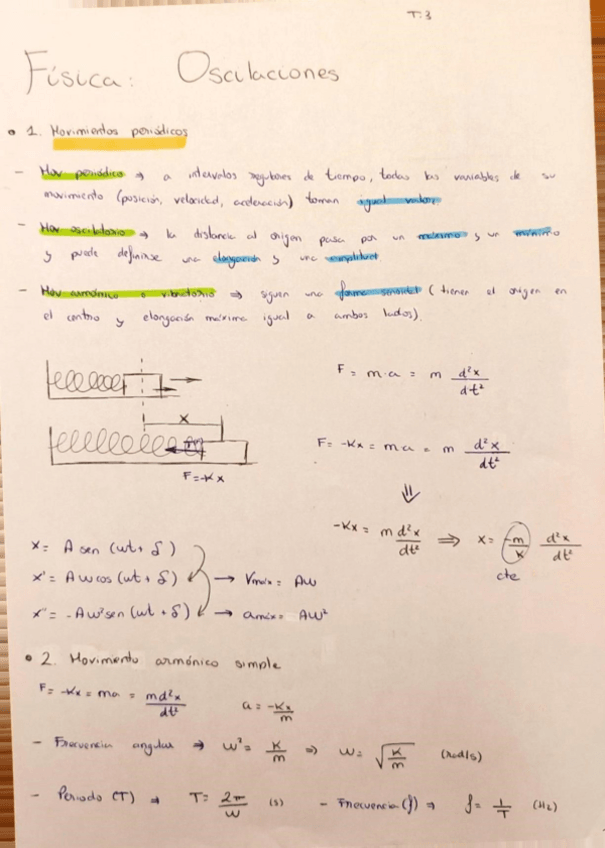 T.3
Física: Oscilaciones
• 1. Movimientos periódicos
- Mov periódico → a intervalos regulares de tiempo, todas las variables de su
movimiento (posición, velocidad, aceleración) toman igual valor.
- Mov oscilatorio → la distancia al origen pasa por un máximo y un mínimo
y puede definirse una elongación y una amplitud
- Mov armónico o vibratorio ⇒ siguen una forma senoidal (tienen el origen en
el centro y elongación máxima igual a ambos lados).
F = m·a = m d²x/dt²
x
F = -Kx = m.a = m d²x/dt²
F=-Kx
⇓
-Kx = m d²x/dt² ⇒ x = -m/K d²x/dt²
cte
x = A sen (wt + δ)
x' = A w cos (wt + δ) → Vmáx = Aw
x'' = -Aw² sen (wt + δ) → amáx = Aw²
• 2. Movimento armónico simple
F = -Kx = ma = md²x/dt² a = -Kx/m
- Frecuencia angular ⇒ w² = K/m ⇒ w = √K/m (rad/s)
- Periodo (T) ⇒ T = 2π/w (s) - Frecuencia (f) ⇒ f = 1/T (Hz)